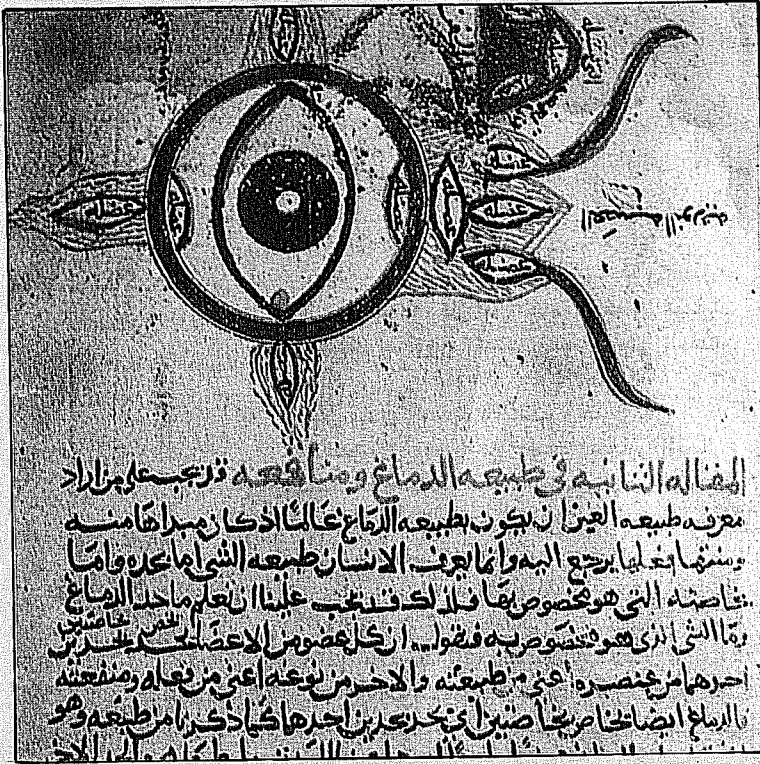 عضله
عضله
عضله
عضله
عضله
عضله
عضله
العصبه النوريه
المقاله الثانيه في طبيعه الدماغ ومنافعه قد يجب على من اراد
معرفه طبيعه العين ان يكون بطبيعه الدماغ عالما اذ كان مبداها منه
ومنتها فعلها يرجع اليه وانما يعرف الانسان طبيعه الشي اما بحده واما
بخاصته التي هو مخصوص بها فلذلك قد يجب علينا ان نعلم ما حد الدماغ
وما الشي الذي هو مخصوص به فنقول ان كل عضو من الاعضا يحد بحدين
احدهما من عنصره اعني من طبيعته والاخر من نوعه اعني من فعله ومنفعته
فالدماغ ايضا بخاصتين اي يحد بحدين احدها كما ذكرنا من طبيعه وهو